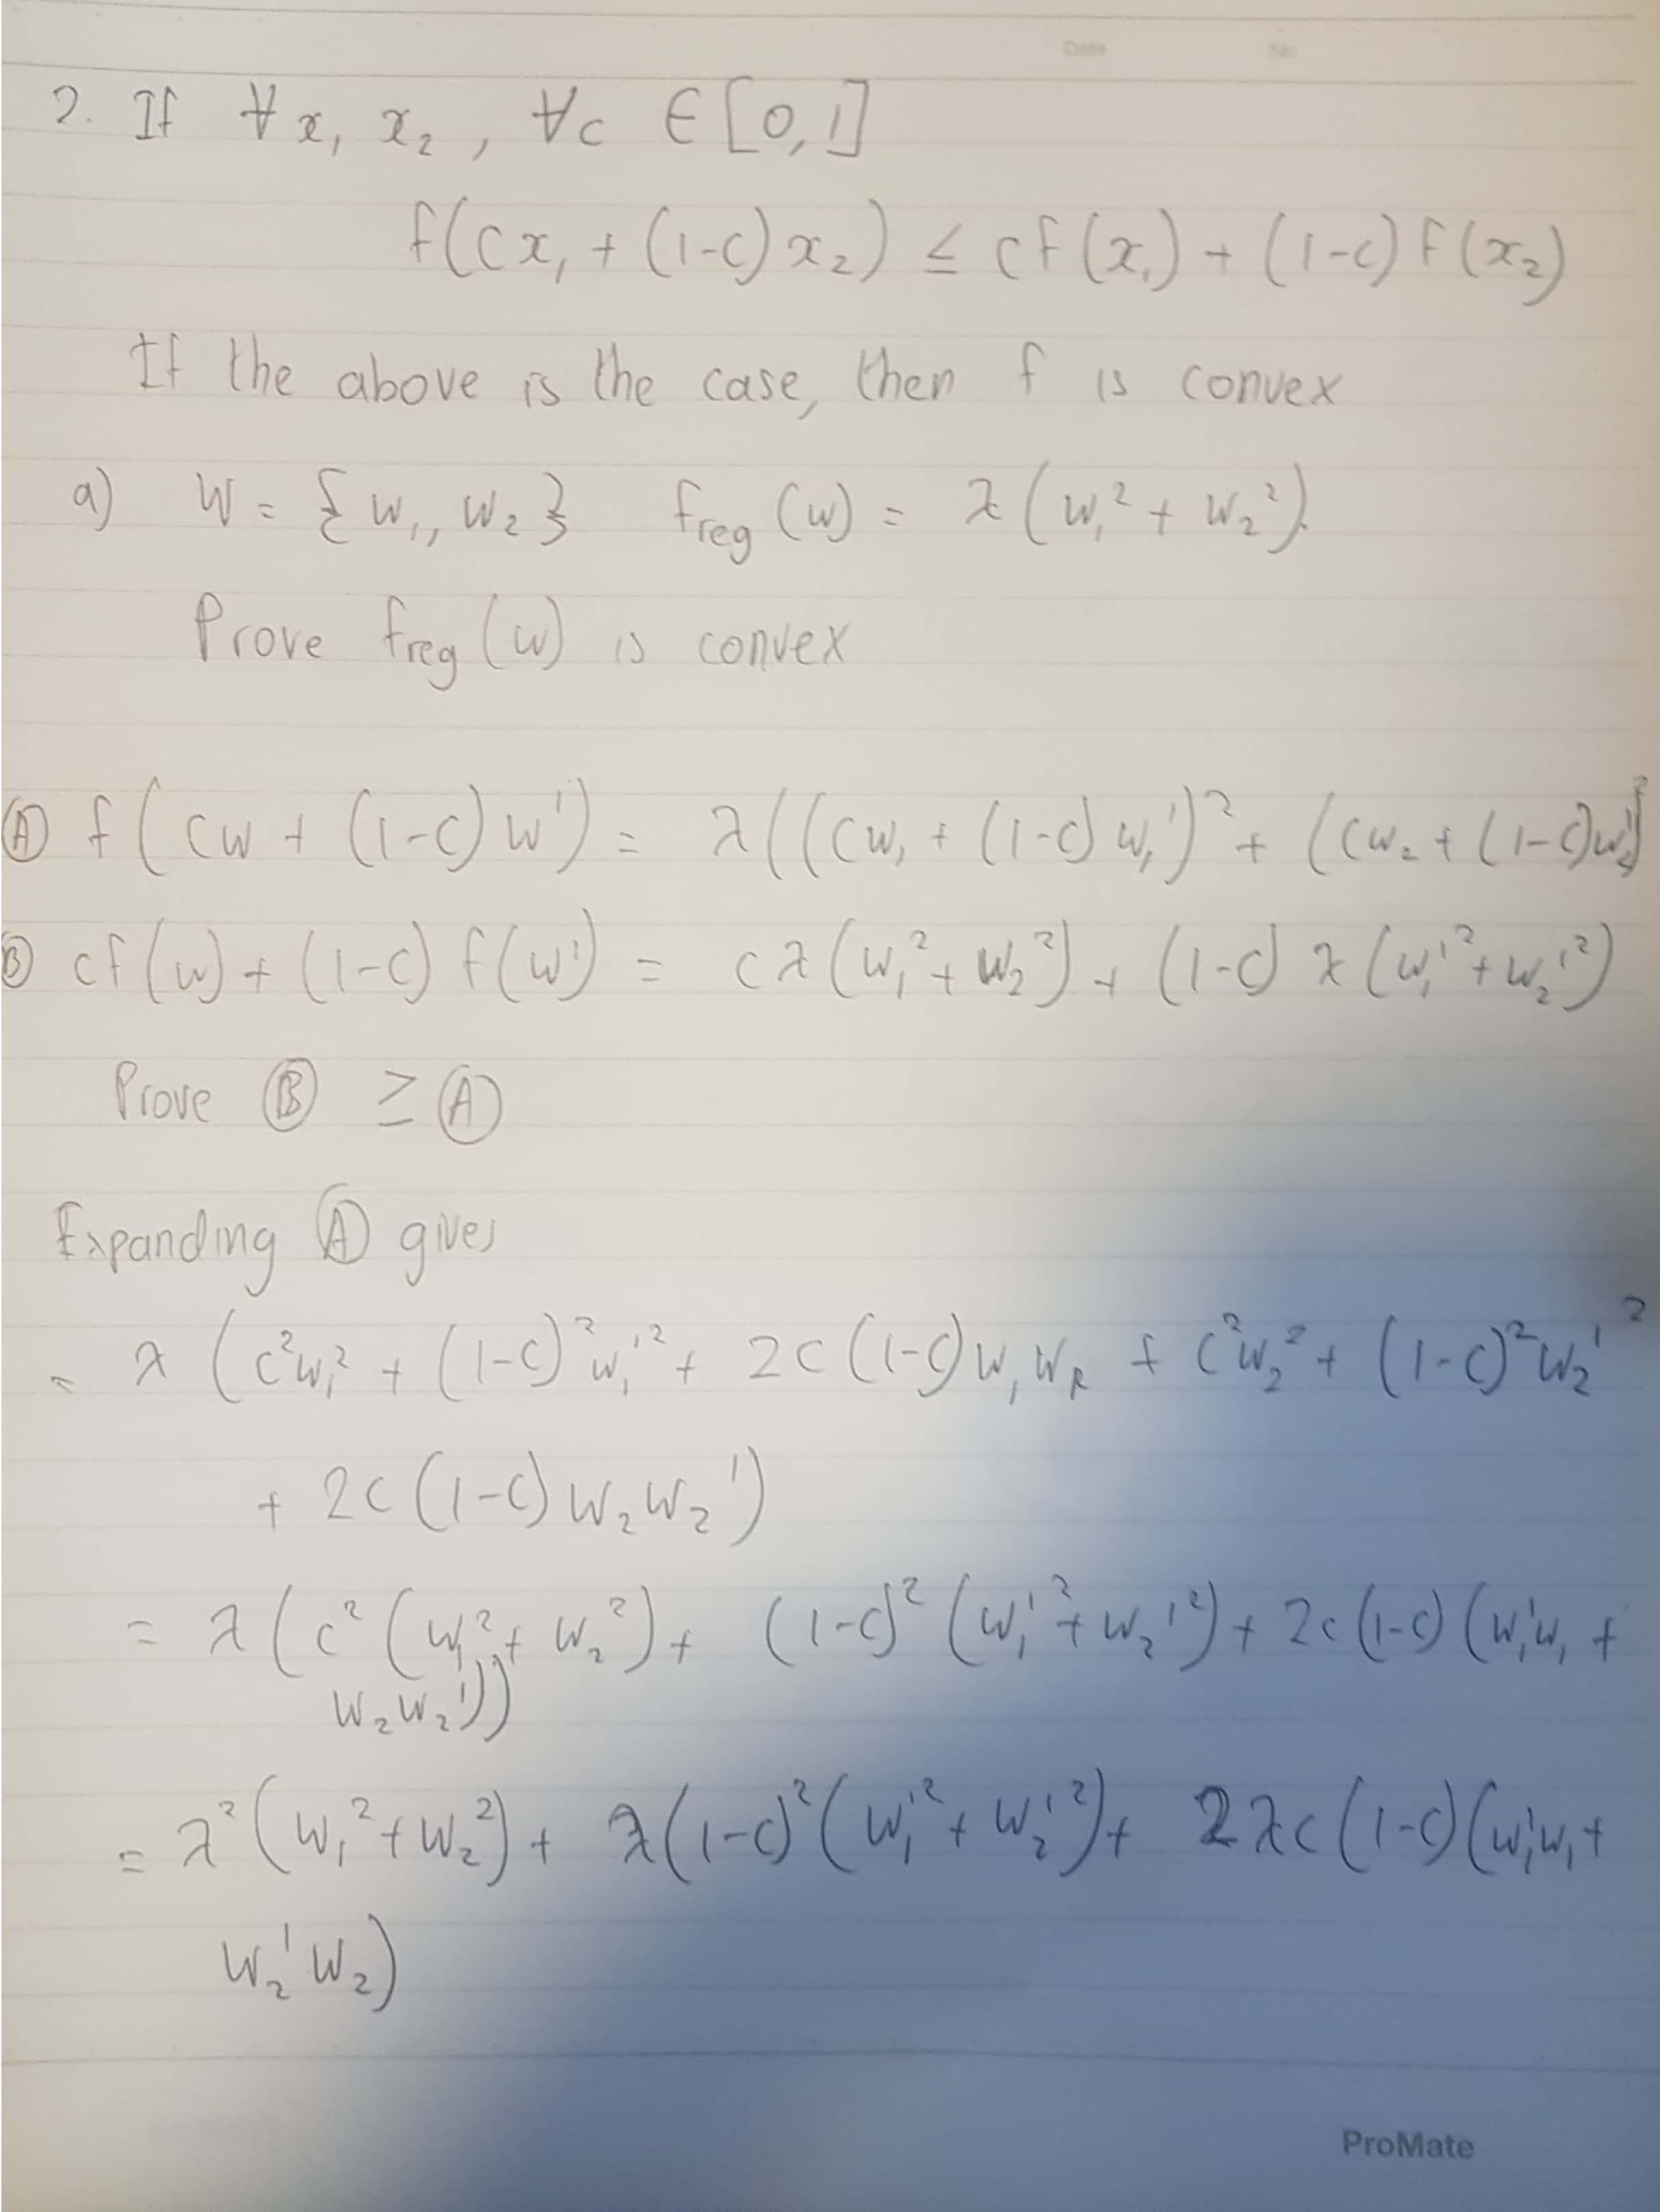 Date No
2. If ∀x₁ x₂, ∀c ∈ [0,1]
f(cx₁ + (1-c)x₂) ≤ cf(x₁) + (1-c)f(x₂)
If the above is the case, then f is convex
a) W = {w₁, w₂} f_reg(w) = λ(w₁² + w₂²).
Prove f_reg(w) is convex
Ⓐ f(cw + (1-c)w') = λ((cw₁ + (1-c)w₁')² + (cw₂ + (1-c)w₂')²
Ⓑ cf(w) + (1-c)f(w') = cλ(w₁² + w₂²) + (1-c)λ(w₁'² + w₂'²)
Prove Ⓑ ≥ Ⓐ
Expanding Ⓐ gives
= λ(c²w₁² + (1-c)²w₁'² + 2c(1-c)w₁w_R + c²w₂² + (1-c)²w₂'²
+ 2c(1-c)w₂w₂')
= λ(c²(w₁² + w₂²) + (1-c)²(w₁'² + w₂'²) + 2c(1-c)(w₁'w₁ +
w₂w₂'))
= λ²(w₁² + w₂²) + λ(1-c)²(w₁'² + w₂'²) + 2λc(1-c)(w₁'w₁ +
w₂'w₂)
ProMate